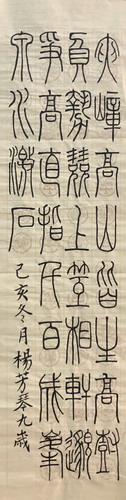 夾嶂高山皆生寒樹
負勢競上互相軒邈
爭高直指千百成峯
泉水激石
己亥冬月楊芳琴九歲